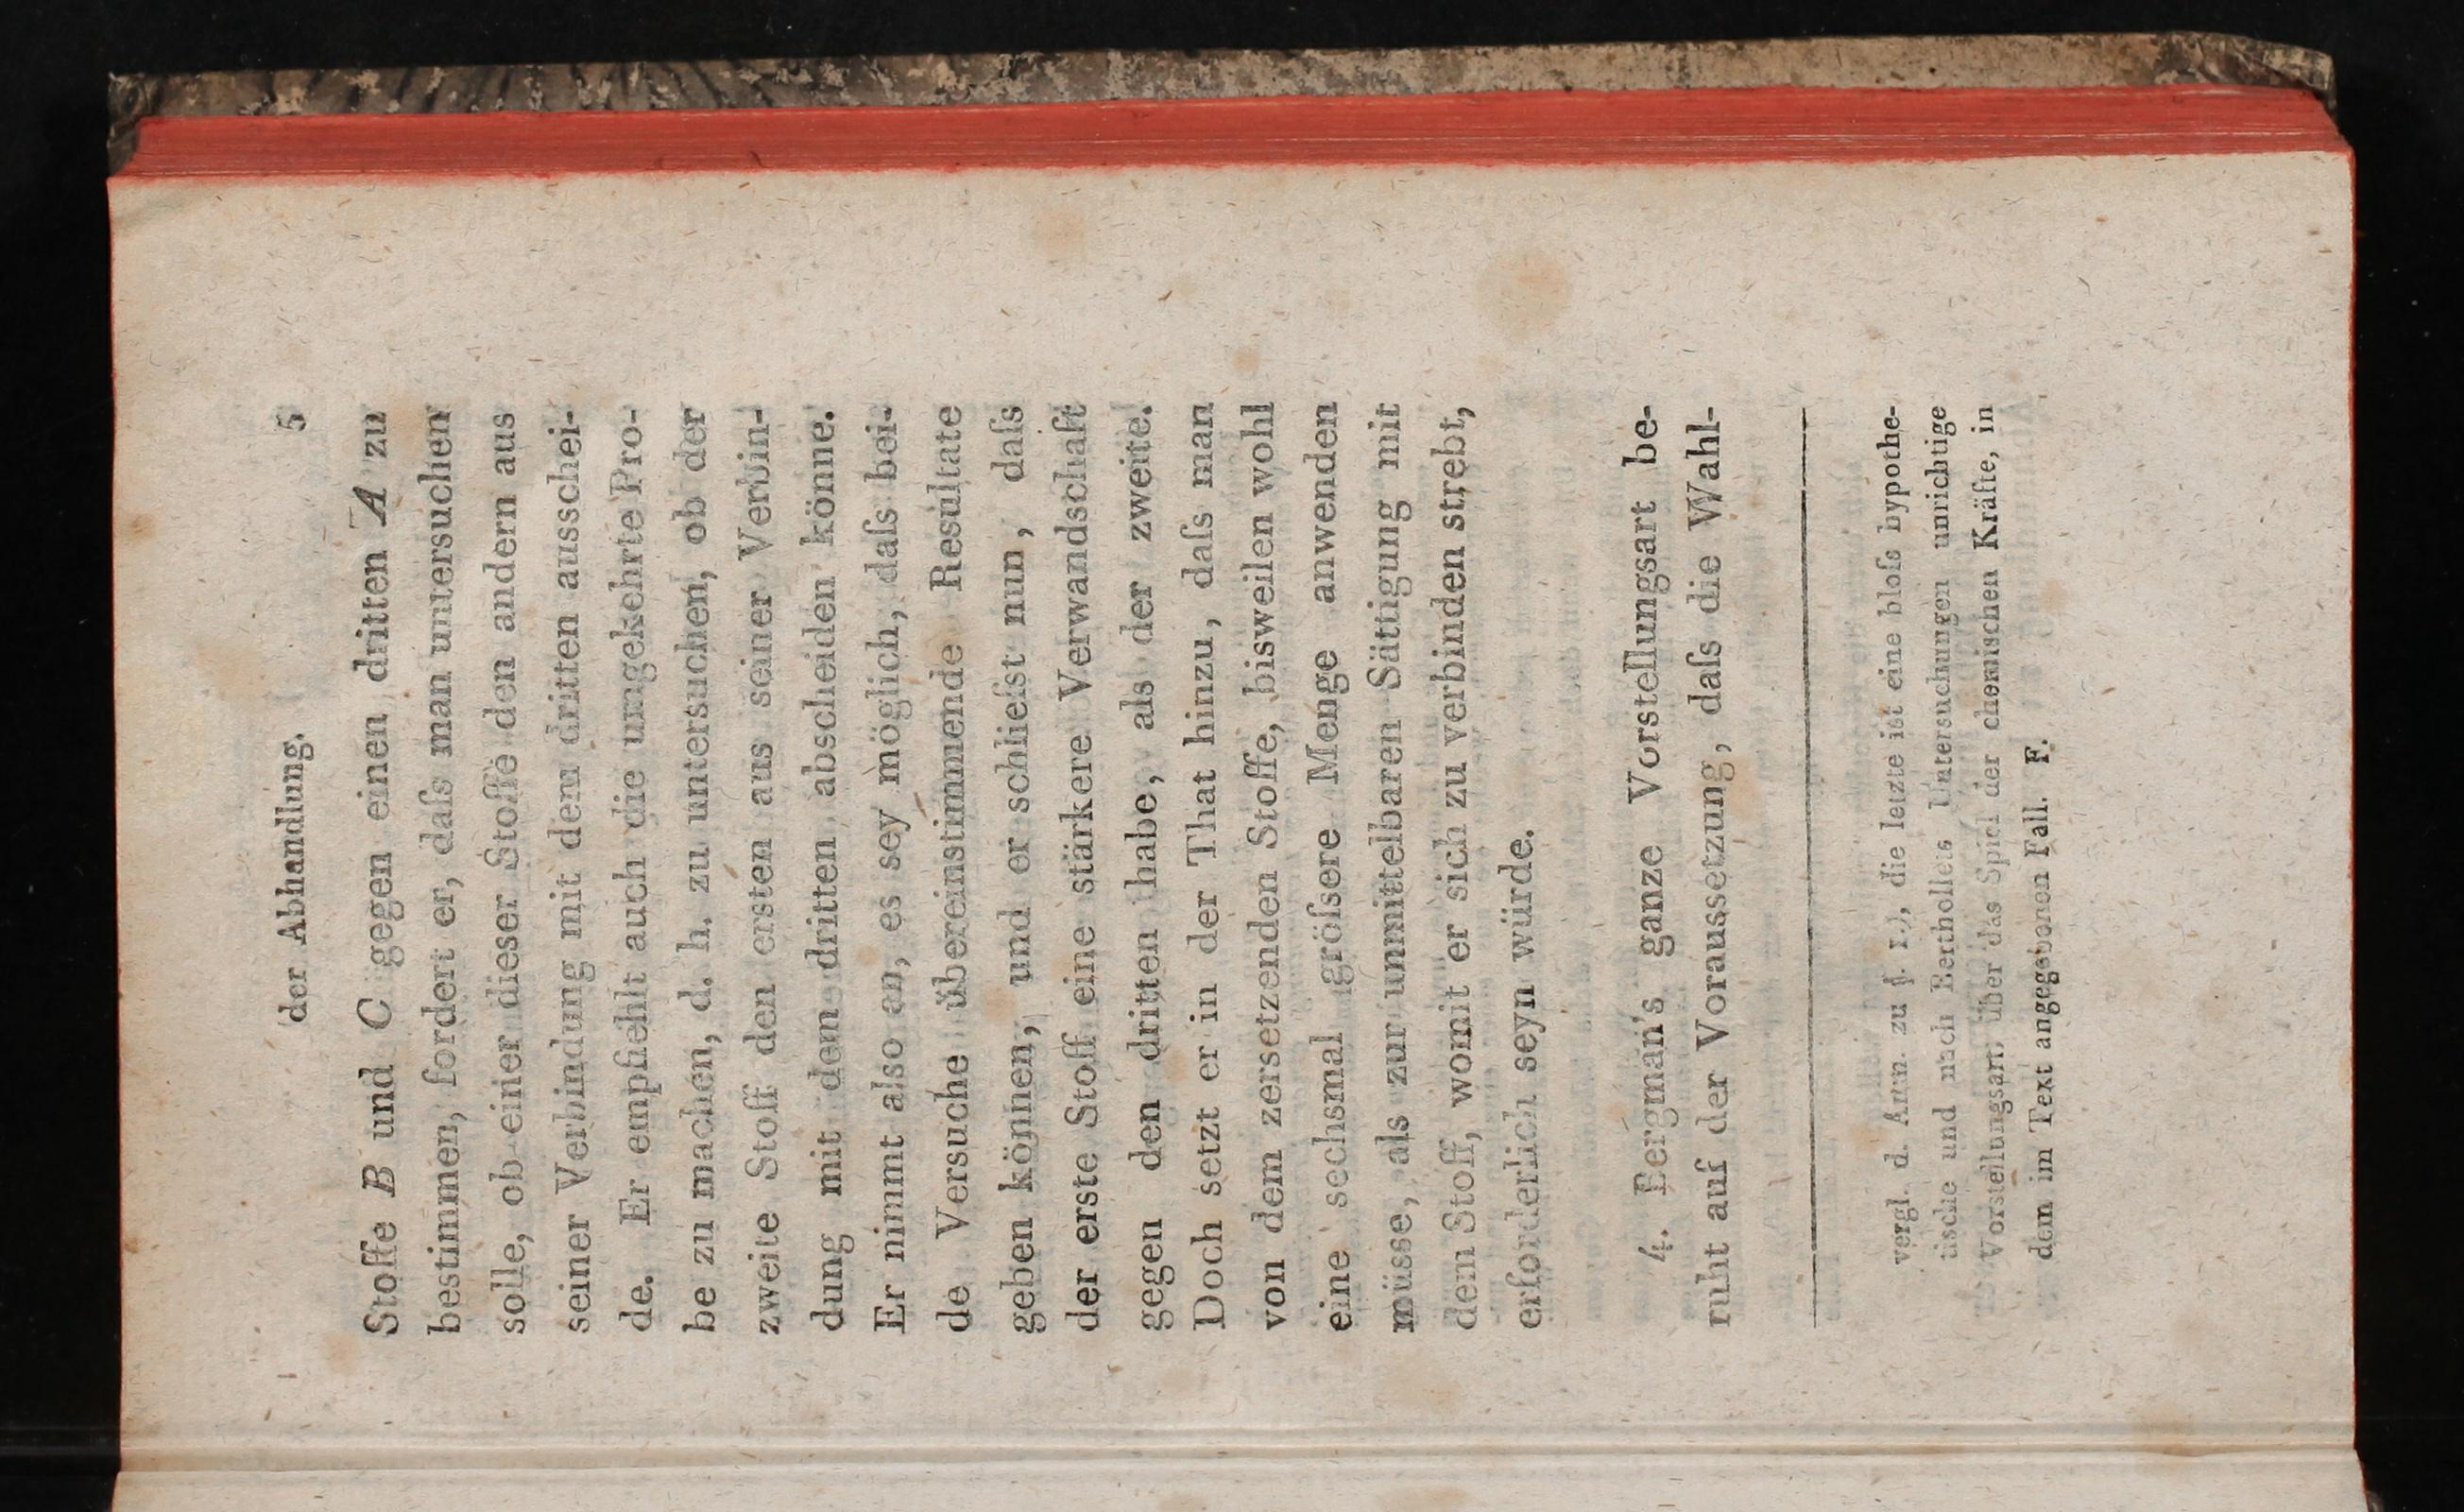 der Abhandlung. 5
Stoffe B und C gegen einen dritten A zu
bestimmen, fordert er, daſs man untersuchen
solle, ob einer dieser Stoffe den andern aus
seiner Verbindung mit dem dritten ausschei-
de. Er empfiehlt auch die umgekehrte Pro-
be zu machen, d. h. zu untersuchen, ob der
zweite Stoff den ersten aus seiner Verbin-
dung mit dem dritten abscheiden könne.
Er nimmt also an, es sey möglich, daſs bei-
de Versuche übereinstimmende Resultate
geben können, und er schlieſst nun, daſs
der erste Stoff eine stärkere Verwandschaft
gegen den dritten habe, als der zweite.
Doch setzt er in der That hinzu, daſs man
von dem zersetzenden Stoffe, bisweilen wohl
eine sechsmal gröſsere Menge anwenden
müsse, als zur unmittelbaren Sätigung mit
dem Stoff, womit er sich zu verbinden strebt,
erforderlich seyn würde.
4. Bergman's ganze Vorstellungsart be-
ruht auf der Voraussetzung, daſs die Wahl-
vergl. d. Anm. zu §. 1.), die letzte ist eine bloſs hypothe-
tische und nach Berthollets Untersuchungen unrichtige
Vorstellungsart, über das Spiel der chemischen Kräfte, in
dem im Text angegebenen Fall. F.